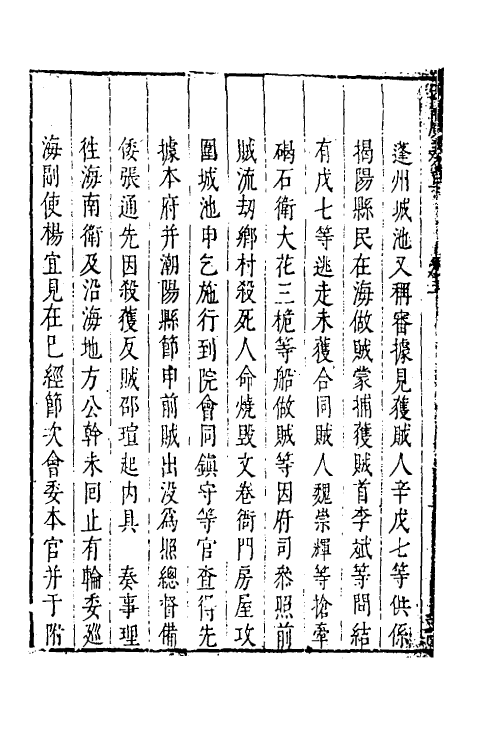 蓬州城池又稱審據見獲賊人辛戊七等供係
揭陽縣民在海做賊蒙捕獲賊首李斌等問結
有戊七等逃走未獲合同賊人魏崇輝等搶牽
碣石衛大花三桅等船做賊等因府司叅照前
賊流刼鄉村殺死人命燒毀文卷衙門房屋攻
圍城池申乞施行到院會同鎮守等官查得先
據本府并潮陽縣節申前賊出没為照總督備
倭張通先因殺獲反賊邵瑄起内具　奏事理
徃海南衛及沿海地方公幹未囘止有輪委廵
海副使楊宜見在已經節次會委本官并于附